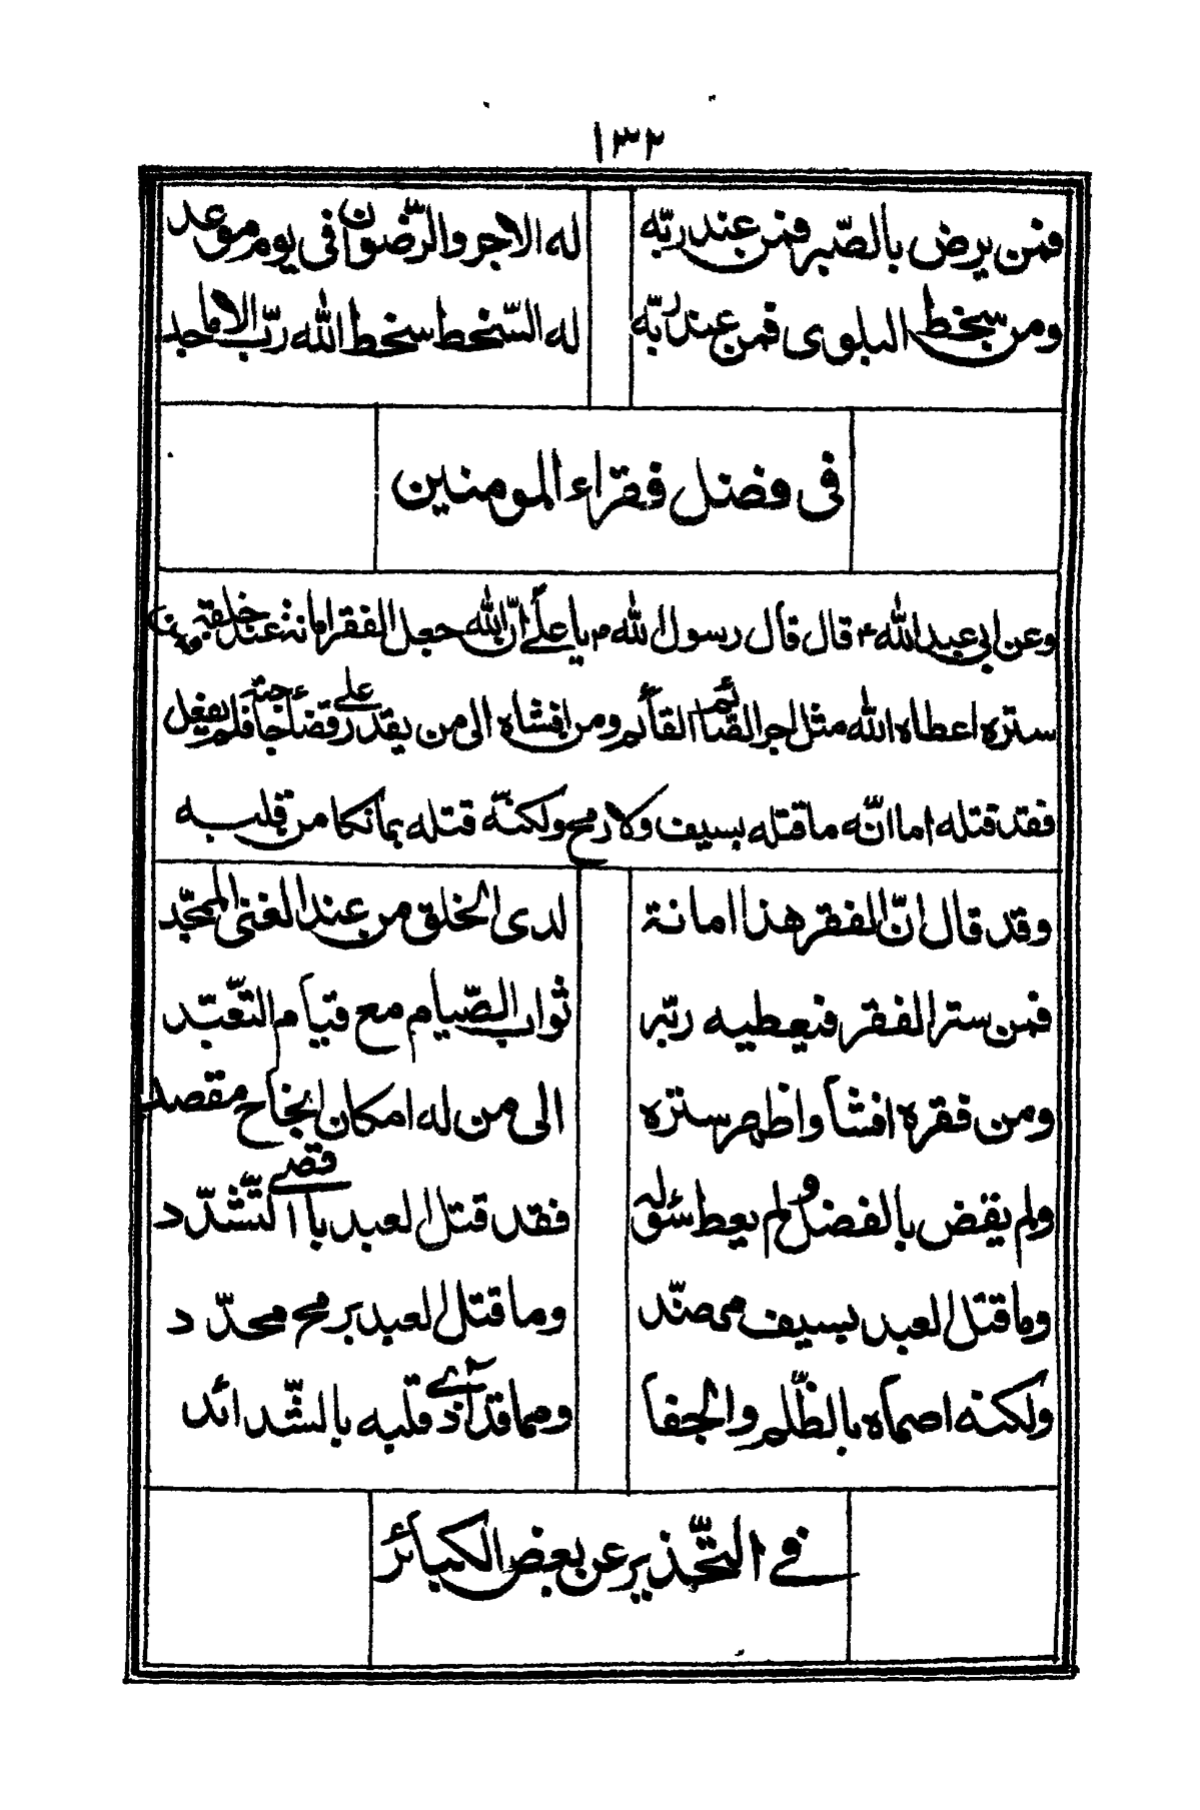 ١٣٢
فمن يرض بالصّبر فمن عند ربّه له الاجر والرّضوان فى يوم موعد
ومن سخط البلوى فمن عند ربّه له السّخط سخط الله ربّ الاماجد
فى فضل فقراء المومنين
وعن ابى عبد الله ع قال قال رسول الله ص يا علىّ انّ الله جعل الفقر امانة عند خلقه فمن
ستره اعطاه الله مثل اجر الصّائم القائم ومن افشاه الى من يقدر على قضاء حاجته فلم يفعل
فقد قتله اما انّه ما قتله بسيف ولا رمح ولكنّه قتله بما نكا من قلبه
وقد قال انّ الفقر هذا امانة لدى الخلق من عند الغنى الممجّد
فمن ستر الفقر فيعطيه ربّه ثواب الصّيام مع قيام التعّبّد
ومن فقره افشا واظهر ستره الى من له امكان انجاح مقصد
ولم يقض بالفضل ولم يعط سؤله فقد قتل العبد با التّشدّد
وما قتل العبد بسيف مهنّد وما قتل العبد برمح محدّد
ولكنه اصماه بالظّلم والجفا ومما قد اذى قلبه بالشّدائد
فے التّحذير عن بعض الكبائر